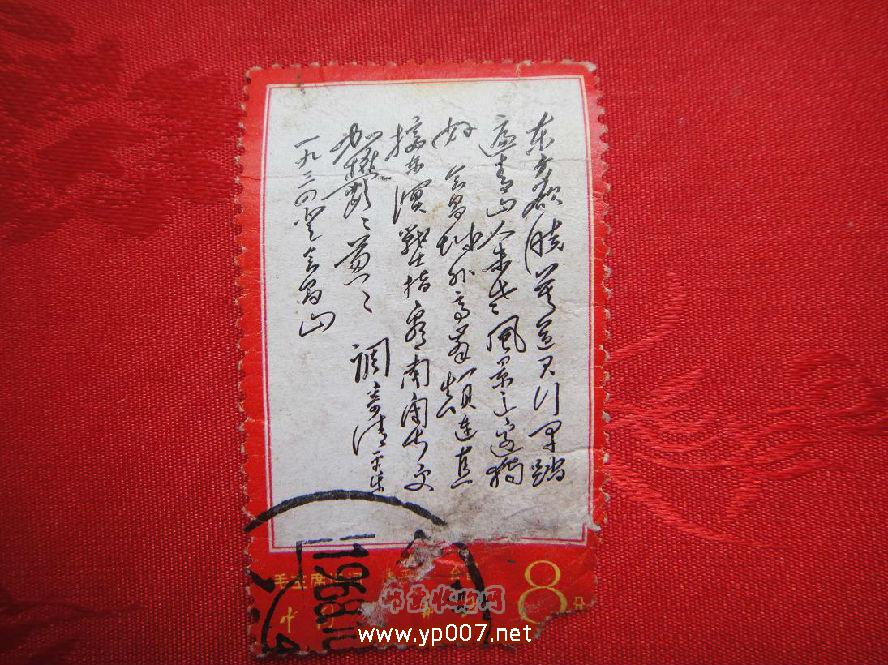 东方欲晓莫道君行早踏
遍青山人未老風景这边独
好 会昌城外高峯颠连直
接东溟戰士指看南粤更
加鬱々葱々 調寄清平乐
一九三四登会昌山
毛主席
8分
1968.10
www.yp007.net